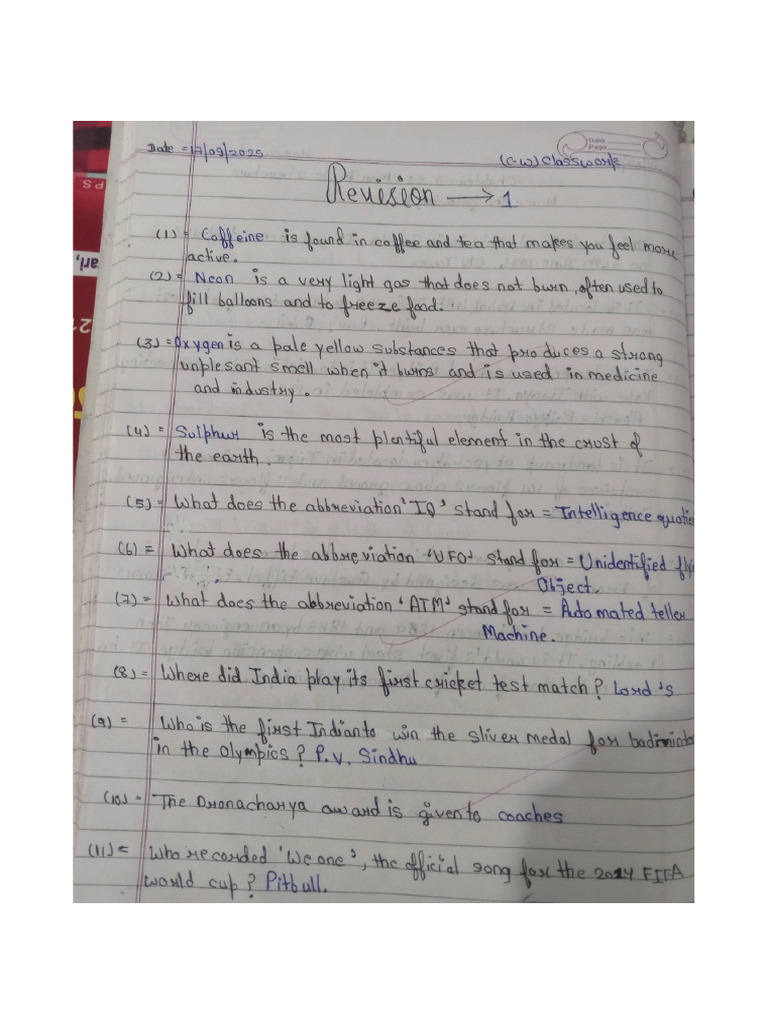 Date = 17/09/2025
(C.W) Classwork
Date
Page
Revision → 1
(1) = Coffeine is found in coffee and tea that makes you feel more
active.
(2) = Neon is a very light gas that does not burn, often used to
fill balloons and to freeze food.
(3) = Oxygen is a pale yellow substances that produces a strong
unplesant smell when it burns and is used in medicine
and industry.
(4) = Sulphur is the most plentiful element in the crust of
the earth.
(5) = What does the abbreviation 'IQ' stand for = Intelligence quotie
(6) = What does the abbreviation 'UFO' stand for = Unidentified fly
Object.
(7) = What does the abbreviation 'ATM' stand for = Automated teller
Machine.
(8) = Where did India play its first cricket test match? Lord's
(9) = Who is the first Indian to win the sliver medal for badminto
in the Olympics? P.V. Sindhu
(10) = The Dronacharya award is given to coaches
(11) = Who recorded 'We one', the official song for the 2014 FIFA
world cup? Pitbull.